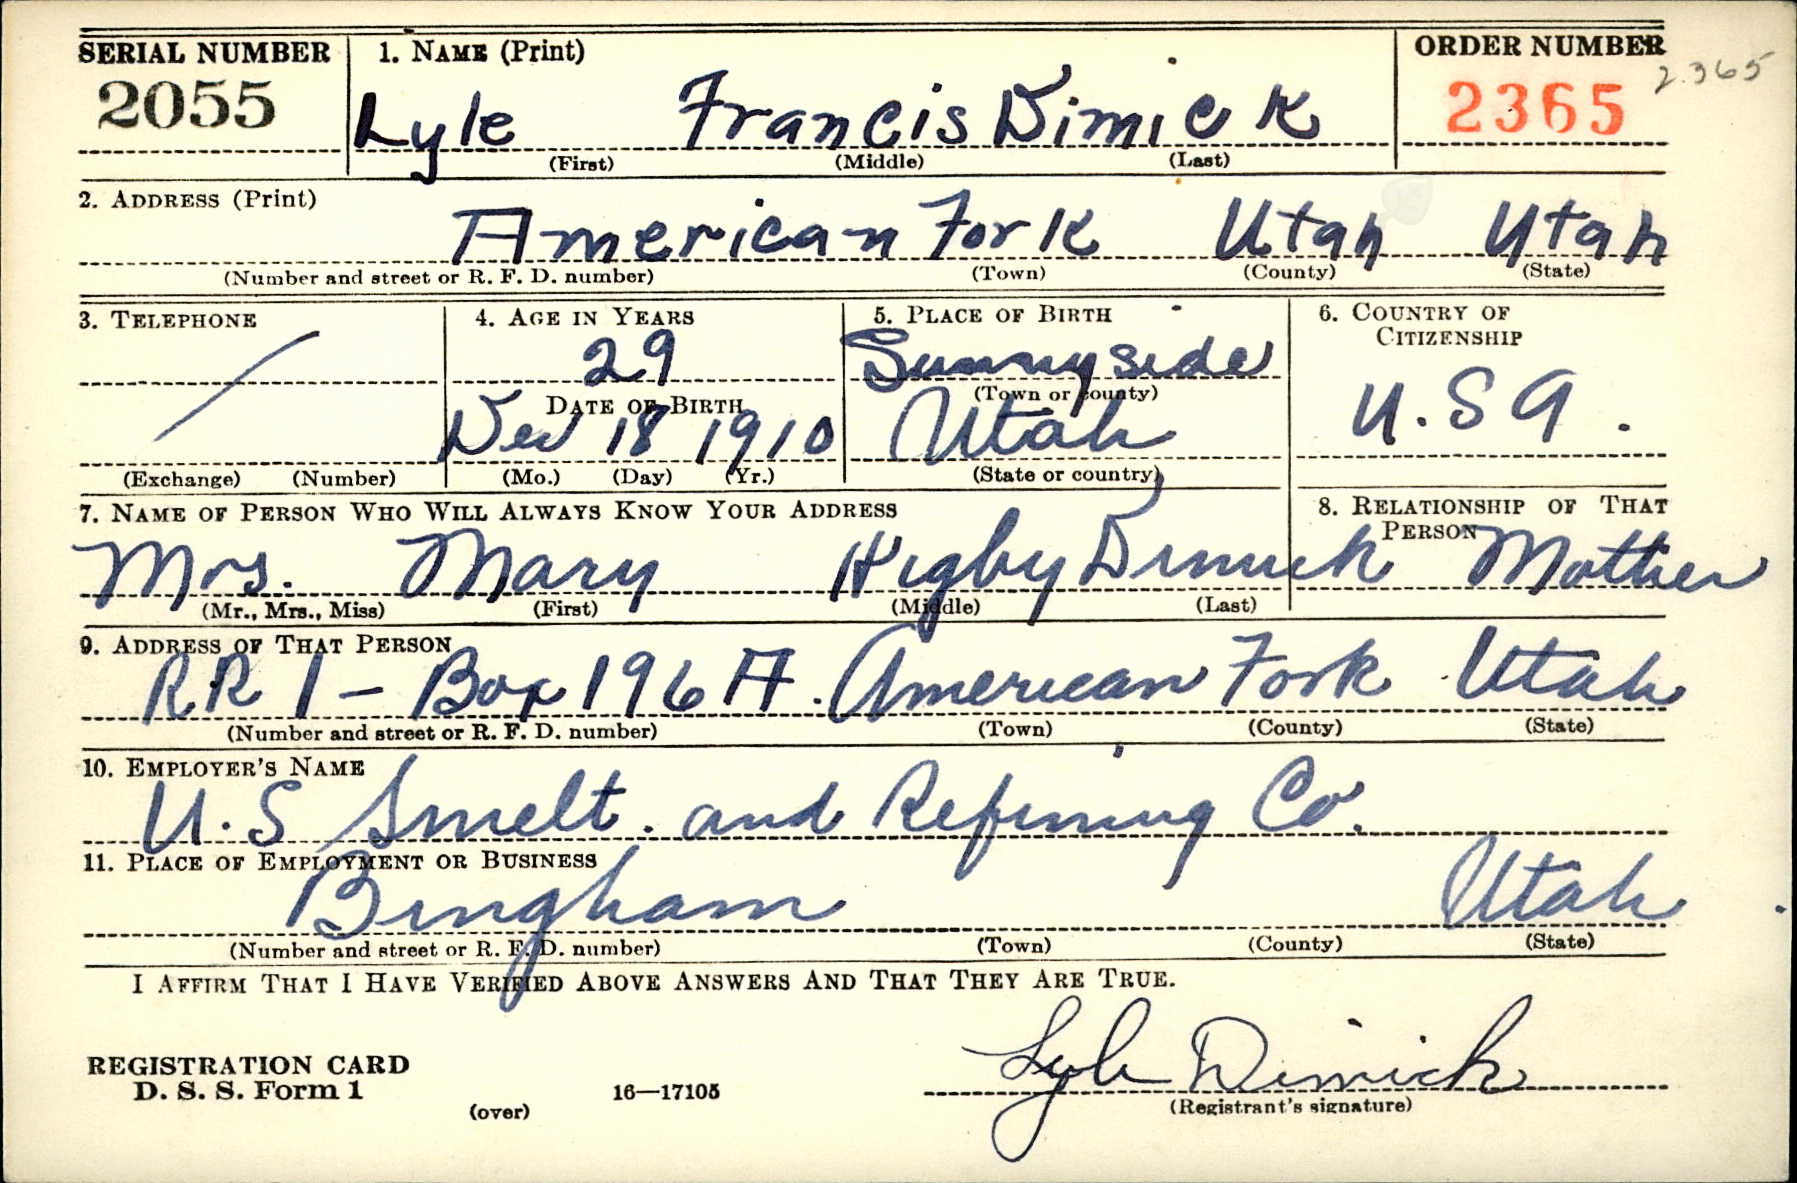 SERIAL NUMBER 1. NAME (Print) ORDER NUMBER
2055 Lyle Francis Dimick 2365 2365
(First) (Middle) (Last)
2. ADDRESS (Print)
American Fork Utah Utah
(Number and street or R. F. D. number) (Town) (County) (State)
3. TELEPHONE 4. AGE IN YEARS 5. PLACE OF BIRTH 6. COUNTRY OF CITIZENSHIP
29 Sunnyside
(Town or county)
DATE OF BIRTH U.S A.
Dec 18 1910 Utah
(Exchange) (Number) (Mo.) (Day) (Yr.) (State or country)
7. NAME OF PERSON WHO WILL ALWAYS KNOW YOUR ADDRESS 8. RELATIONSHIP OF THAT PERSON
Mrs. Mary Higby Dimick Mother
(Mr., Mrs., Miss) (First) (Middle) (Last)
9. ADDRESS OF THAT PERSON
RR 1 - Box 196 A. American Fork Utah
(Number and street or R. F. D. number) (Town) (County) (State)
10. EMPLOYER'S NAME
U.S Smelt. and Refining Co.
11. PLACE OF EMPLOYMENT OR BUSINESS
Bingham Utah
(Number and street or R. F. D. number) (Town) (County) (State)
I AFFIRM THAT I HAVE VERIFIED ABOVE ANSWERS AND THAT THEY ARE TRUE.
REGISTRATION CARD
D. S. S. Form 1 16—17105 Lyle Dimick
(over) (Registrant's signature)